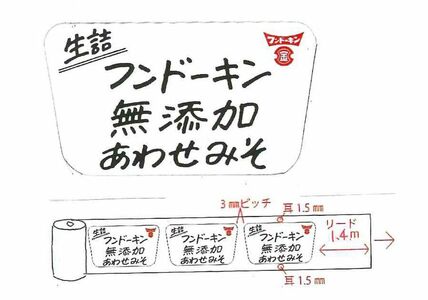 生詰
フンドーキン
金
フンドーキン
無添加
あわせみそ
3㎜ピッチ
耳1.5㎜
リード
1.4m
生詰
フンドーキン
無添加
あわせみそ
生詰
フンドーキン
無添加
あわせみそ
生詰
フンドーキン
無添加
あわせみそ
耳1.5㎜